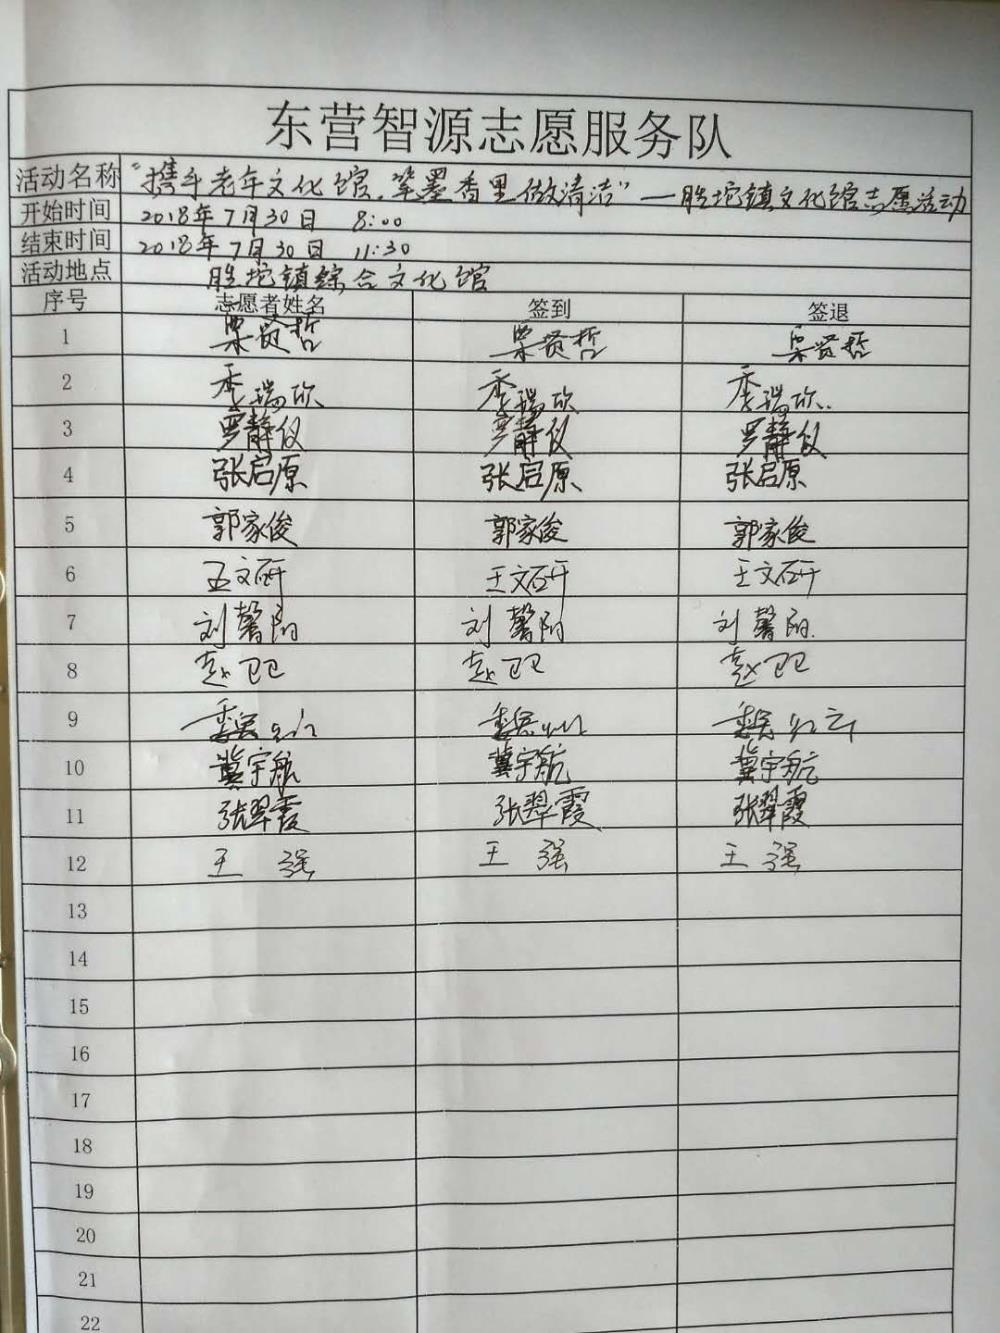 东营智源志愿服务队
活动名称 "携手老年文化馆，笔墨香里做清洁"—胜坨镇文化馆志愿活动
开始时间 2018年7月30日 8:00
结束时间 2018年7月30日 11:30
活动地点 胜坨镇综合文化馆
序号 志愿者姓名 签到 签退
1 栗贤哲 栗贤哲 栗贤哲
2 季瑞欣 季瑞欣 季瑞欣
3 罗静仪 罗静仪 罗静仪
4 张启原 张启原 张启原
5 郭家俊 郭家俊 郭家俊
6 王文研 王文研 王文研
7 刘馨阳 刘馨阳 刘馨阳
8 赵卫卫 赵卫卫 赵卫卫
9
10 冀宇航 冀宇航 冀宇航
11 张翠霞 张翠霞 张翠霞
12 王强 王强 王强
13
14
15
16
17
18
19
20
21
22